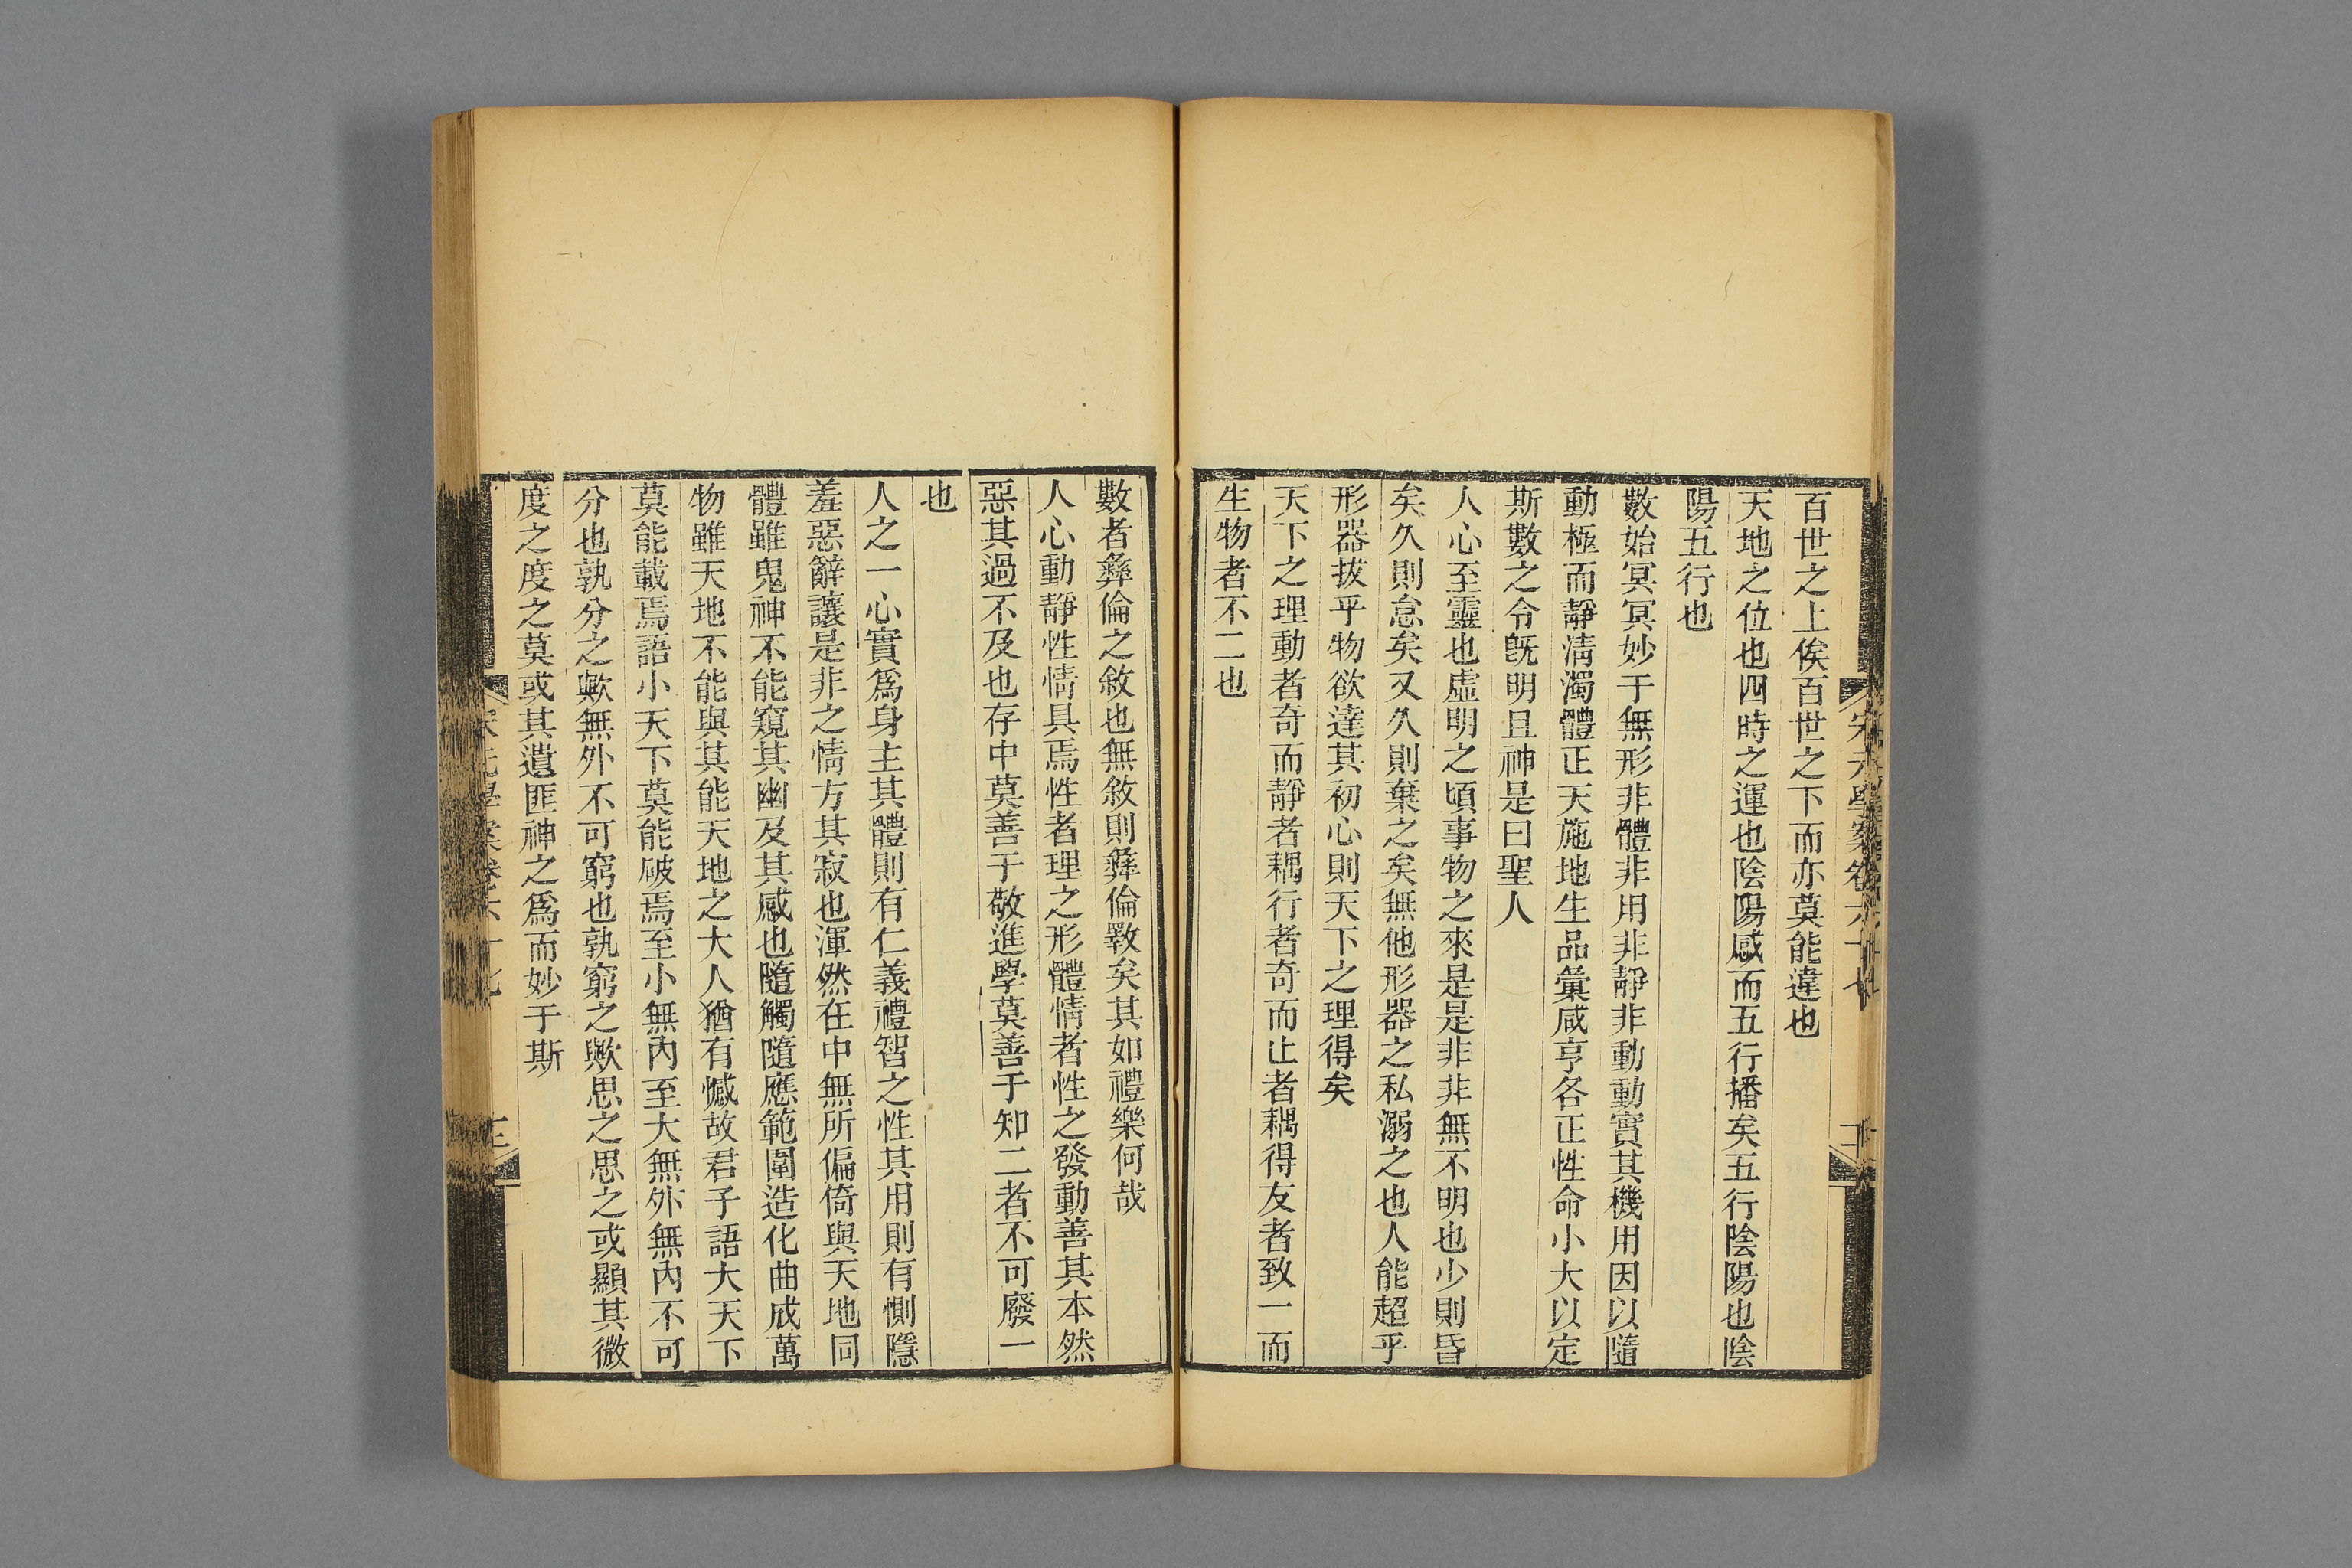 百世之上俟百世之下而亦莫能違也
天地之位也四時之運也陰陽感而五行播矣五行陰陽也陰
陽五行也
數始冥冥妙于無形非體非用非靜非動動實其機用因以隨
動極而靜淸濁體正天施地生品彙咸亨各正性命小大以定
斯數之令旣明且神是曰聖人
人心至靈也虛明之頃事物之來是是非非無不明也少則昏
矣久則怠矣又久則棄之矣無他形器之私溺之也人能超乎
形器拔乎物欲達其初心則天下之理得矣
天下之理動者奇而靜者耦行者奇而止者耦得友者致一而
生物者不二也
數者彝倫之敘也無敘則彝倫斁矣其如禮樂何哉
人心動靜性情具焉性者理之形體情者性之發動善其本然
惡其過不及也存中莫善于敬進學莫善于知二者不可廢一
也
人之一心實爲身主其體則有仁義禮智之性其用則有惻隱
羞惡辭讓是非之情方其寂也渾然在中無所偏倚與天地同
體雖鬼神不能窺其幽及其感也隨觸隨應範圍造化曲成萬
物雖天地不能與其能天地之大人猶有憾故君子語大天下
莫能載焉語小天下莫能破焉至小無內至大無外無內不可
分也孰分之歟無外不可窮也孰窮之歟思之思之或顯其微
度之度之莫或其遺匪神之爲而妙于斯